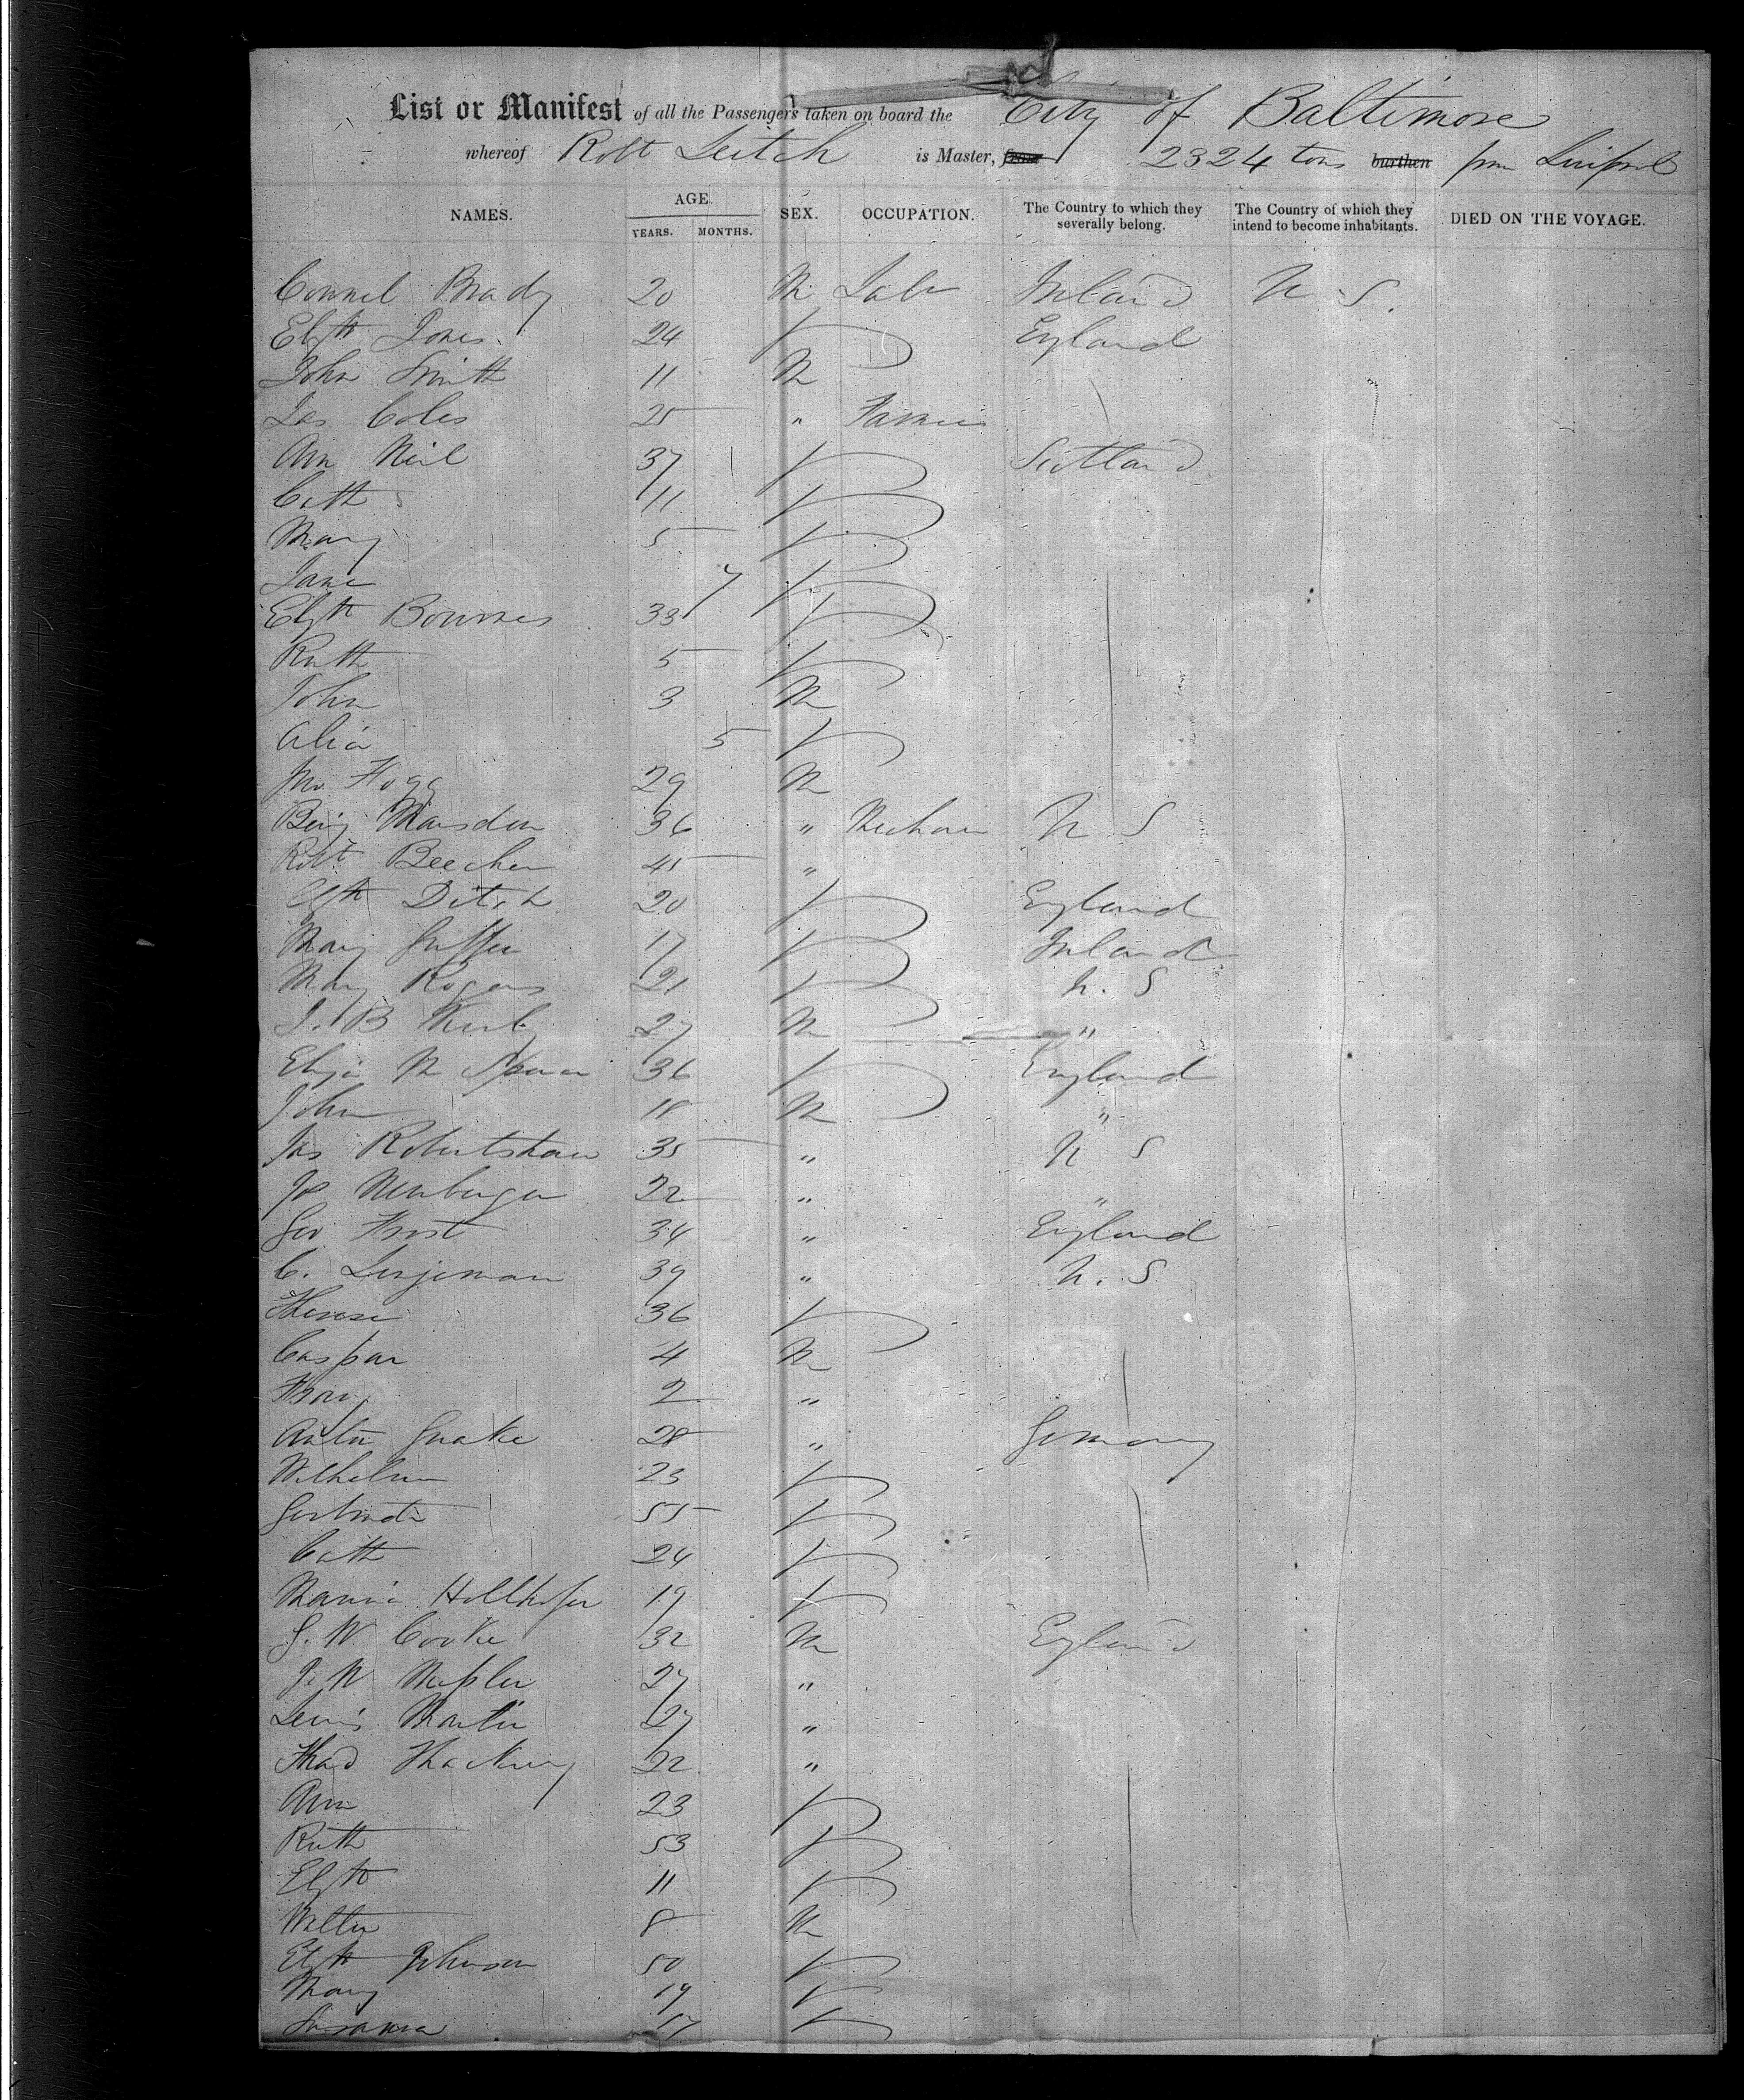 List or Manifest of all the Passengers taken on board the City of Baltimore
whereof Robt Leitch is Master, from 2324 tons burthen from Liverpool
NAMES. AGE. YEARS. MONTHS. SEX. OCCUPATION. The Country to which they severally belong. The Country of which they intend to become inhabitants. DIED ON THE VOYAGE.
Connel Brady 20 M Labr Ireland U S.
Elizth Jones 24 England
John Smith 11 M
Jas Coles 25 " Farmer
Ann Neil 37 Scotland
Cath 11
Mary 5
Jane 7
Elizth Bournes 33
Ruth 5
John 3 M
Alice 5
Jno Hogg 29 M
Benj Marsden 36 " Mechanic U S
Robt Beecher 45 "
Elzth Ditch 20 England
Mary Griffin 17 Ireland
Mary Rogers 21 U. S
J. B 27 M "
Eliza M Spencer 36 England
John 18 M "
Jas Robertshaw 35 " U S
Jos Newburger 22 " "
Geo Frost 34 " England
C. Linjeman 39 " U. S
Therese 36
Caspar 4 M
Franz 2 "
Anton Gnake 28 " Germany
Wilhelm 23
Gertrude 55
Cath 24
Maria Hollhofer 19
G. W. Cooke 32 M England
J. W 27 "
Lewis Martin 27 "
Thad Thackery 22 "
Ann 23
Ruth 53
Elzth 11
Walter 8 M
Elzth Johnson 50
Mary 19
Susanna 17